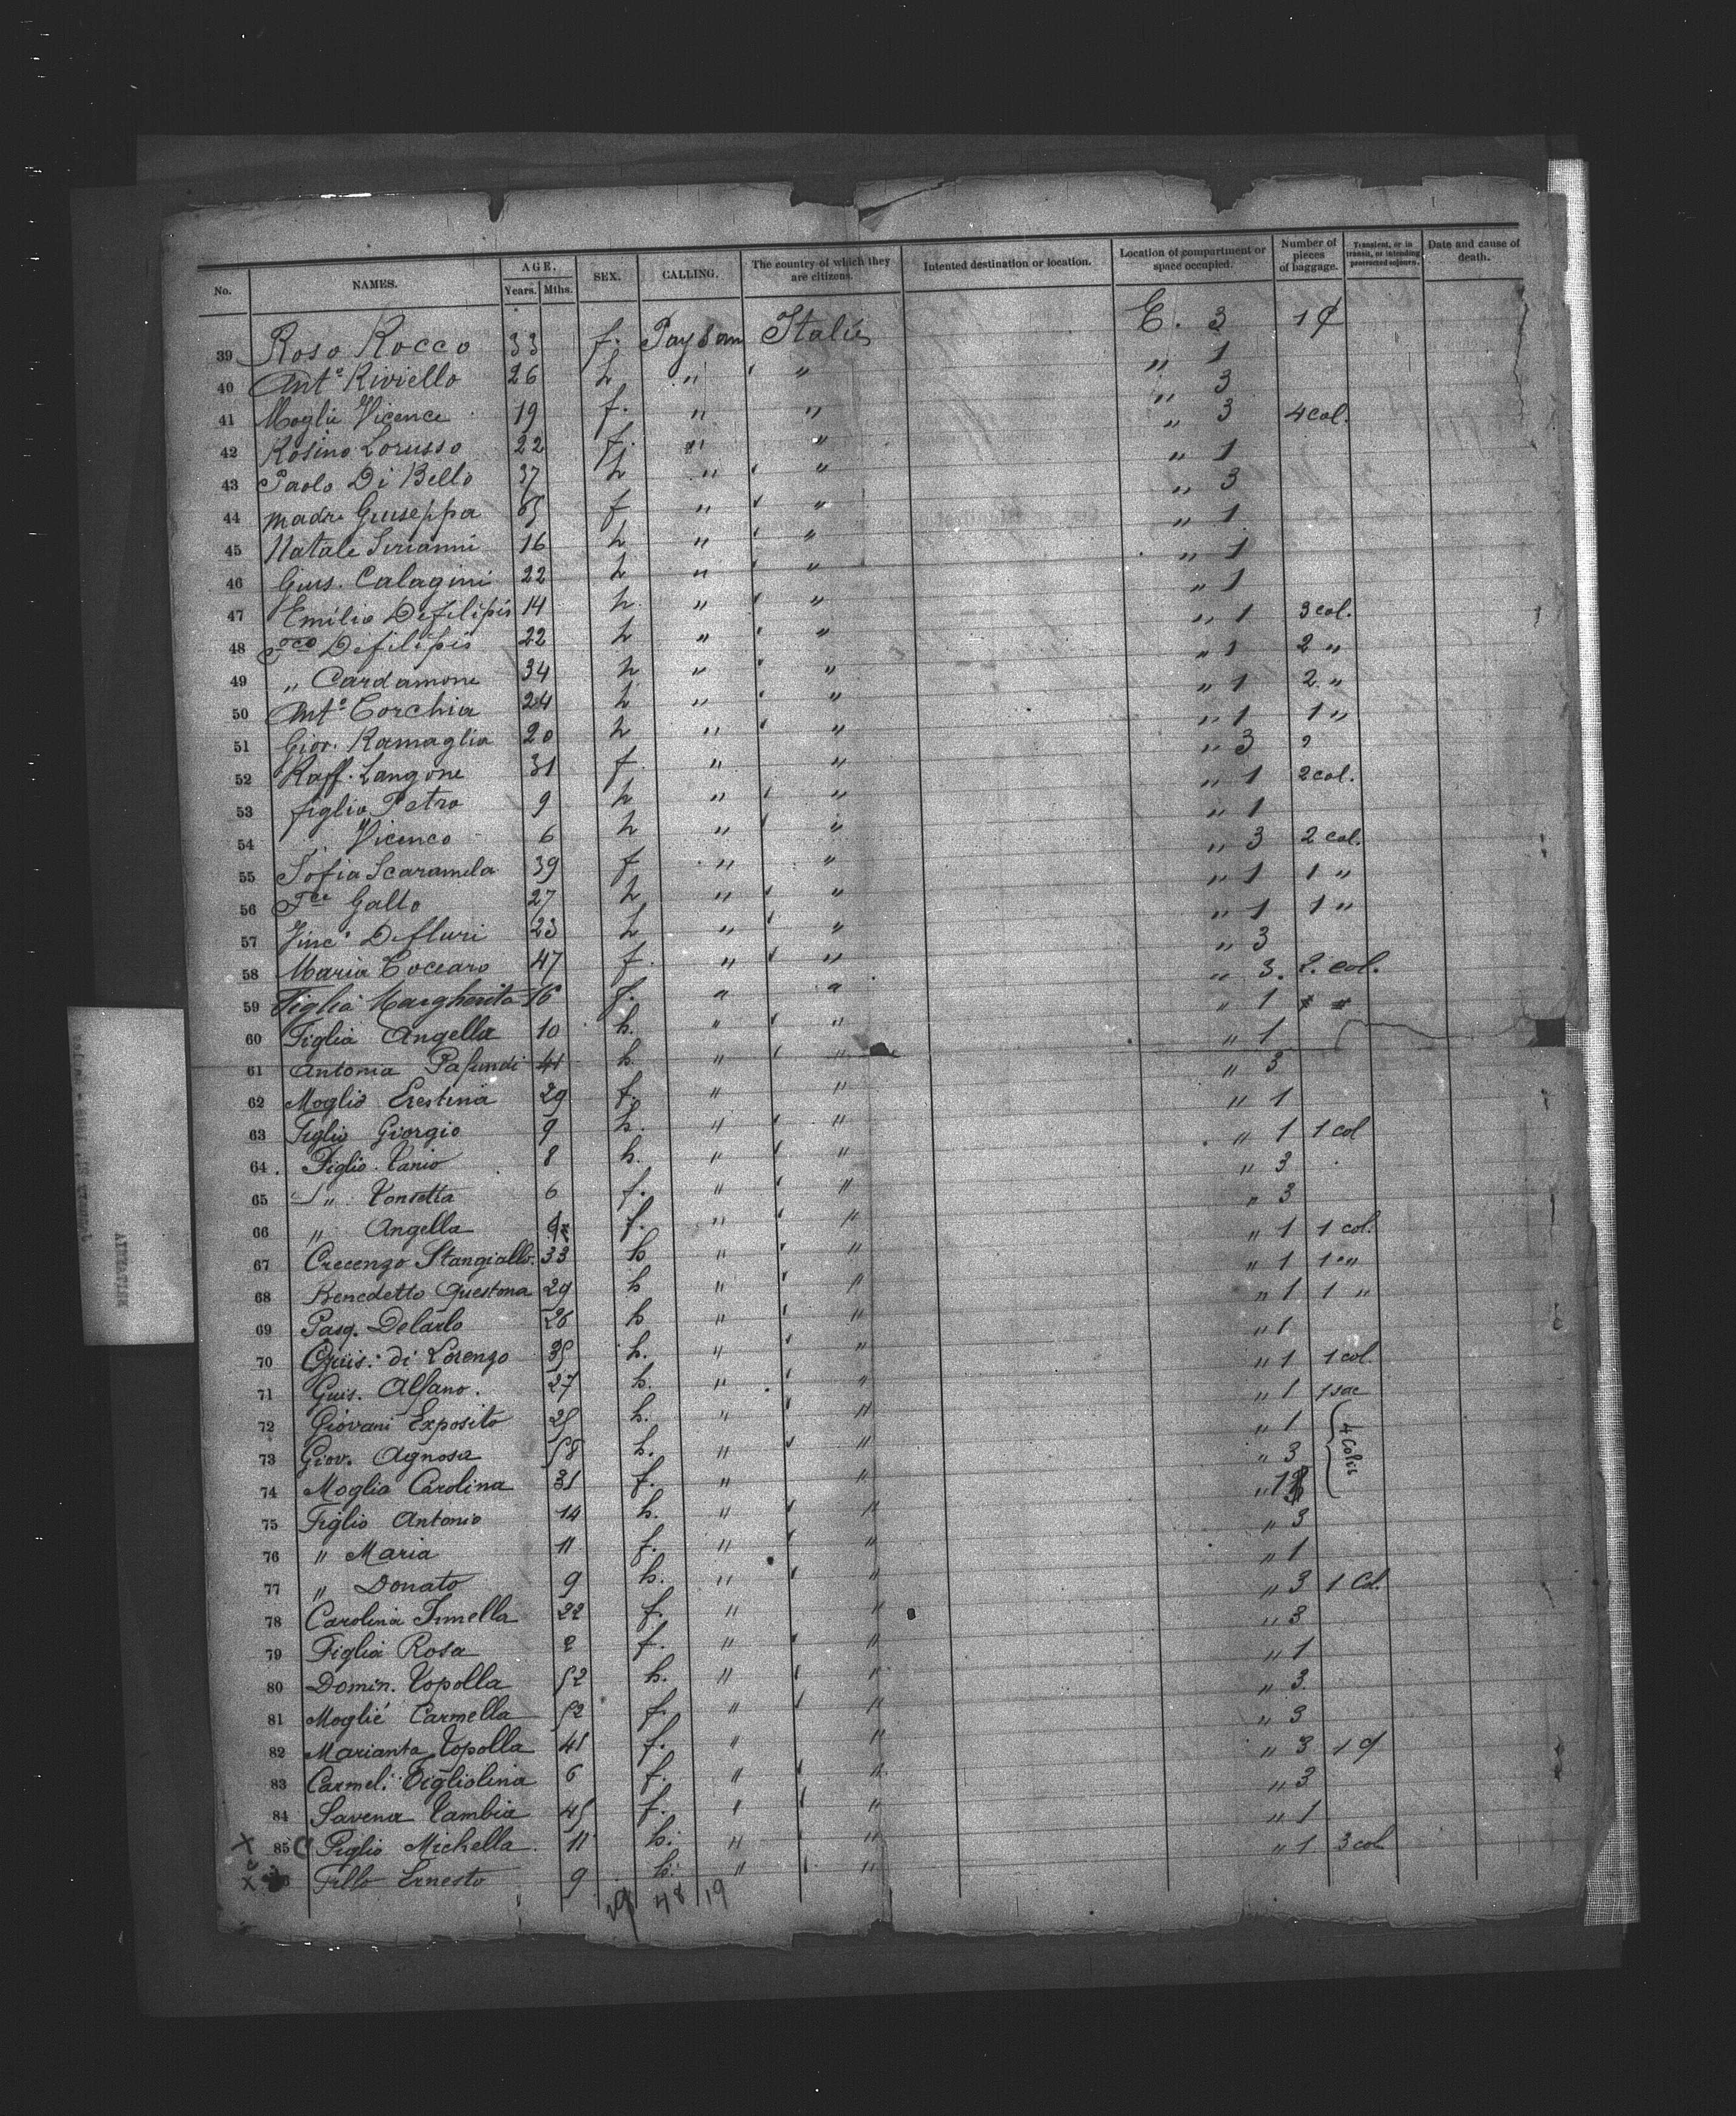 No. NAMES. AGE. Years. Mths. SEX. CALLING. The country of which they are citizens. Intented destination or location. Location of compartment or space occupied. Number of pieces of baggage. Transient, or in transit, or intending protracted sojourn. Date and cause of death.
39 Roso Rocco 33 f. Paysan Italie E. 3 1
40 Antº Riviello 26 h " " " 1
41 Moglie Vicence 19 f. " " " 3
42 Rosino Lorusso 22 f. " " " 3 4 col.
43 Paolo Di Bello 37 h " " " 1
44 madre Giuseppa 65 f " " " 3
45 Natale Sirianni 16 h " " " 1
46 Gius. Calagini 22 h " " " 1
47 Emilio Defilipis 14 h. " " " 1
48 Fco Defilipis 22 h " " " 1 3 col.
49 " Cardamone 34 h " " " 1 2 "
50 Antº Corchia 24 h " " " 1 2 "
51 Giov. Ramaglia 20 h " " " 1 1 "
52 Raff. Langone 31 f " " " 3 2
53 figlio Petro 9 h " " " 1 2 col.
54 " Vicenco 6 h " " " 1
55 Sofia Scaramela 39 f " " " 3 2 col.
56 Fce Gallo 27 h " " " 1 1 "
57 Vincº Defluri 23 h " " " 1 1 "
58 Maria Coccaro 47 f. " " " 3
59 Figlia Margherita 16 f. " " " 3. 2. col.
60 Figlia Angella 10 h. " " " 1
61 Antonia Pafundi 41 h. " " " 1
62 Moglio Erestina 29 f. " " " 3
63 Figlio Giorgio 9 h. " " " 1
64 Figlio Canio 8 h. " " " 1 1 col
65 " Consetta 6 f. " " " 3
66 " Angella f. " " " 3
67 Crecenzo Stangiallo. 33 h " " " 1 1 col.
68 Benedetto Questona 29 h " " " 1 1 "
69 Pasq. Delarlo 26 h " " " 1 1 "
70 Guis. di Lorenzo 35 h. " " " 1
71 Guis. Alfano. 27 h. " " " 1 1 col.
72 Giovani Exposito 25 h. " " " 1 1 sac
73 Giov. Agnosa 58 h. " " " 1 4 Colis
74 Moglia Carolina 31 f. " " " 3
75 Figlio Antonio 14 h. " " " 1
76 " Maria 11 f. " " " 3
77 " Donato 9 h. " " " 1
78 Carolina Tumella 22 f. " " " 3 1 Col.
79 Figlia Rosa 2 f. " " " 3
80 Domin. Copolla 52 h. " " " 1
81 Moglié Carmella 52 f. " " " 3.
82 Marianta Copolla 41 f. " " " 3
83 Carmeli Bigliolina 6 f. " " " 3 1
84 Savena Cambia 45 f. " " " 3
X 85 Figlio Michella. 11 h. " " " 1
X Fillo Ernesto 9 h. " " " 1 3 col
48 19